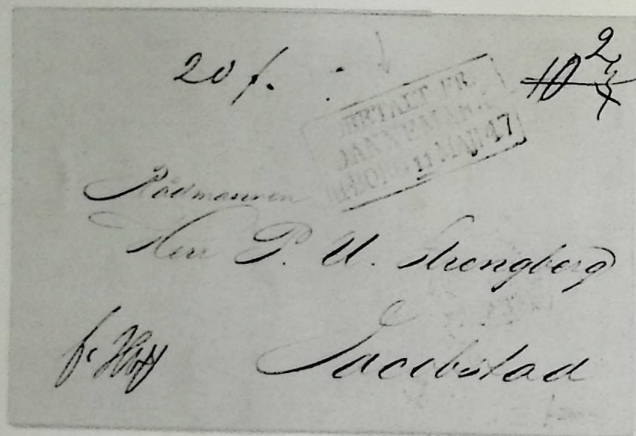 20 f.
10
OBETALT FR.
DANNEMARK
H:BORG. 11 MAJ 47
Rådmannen
Herr P. U. Strengberg
Jacobstad